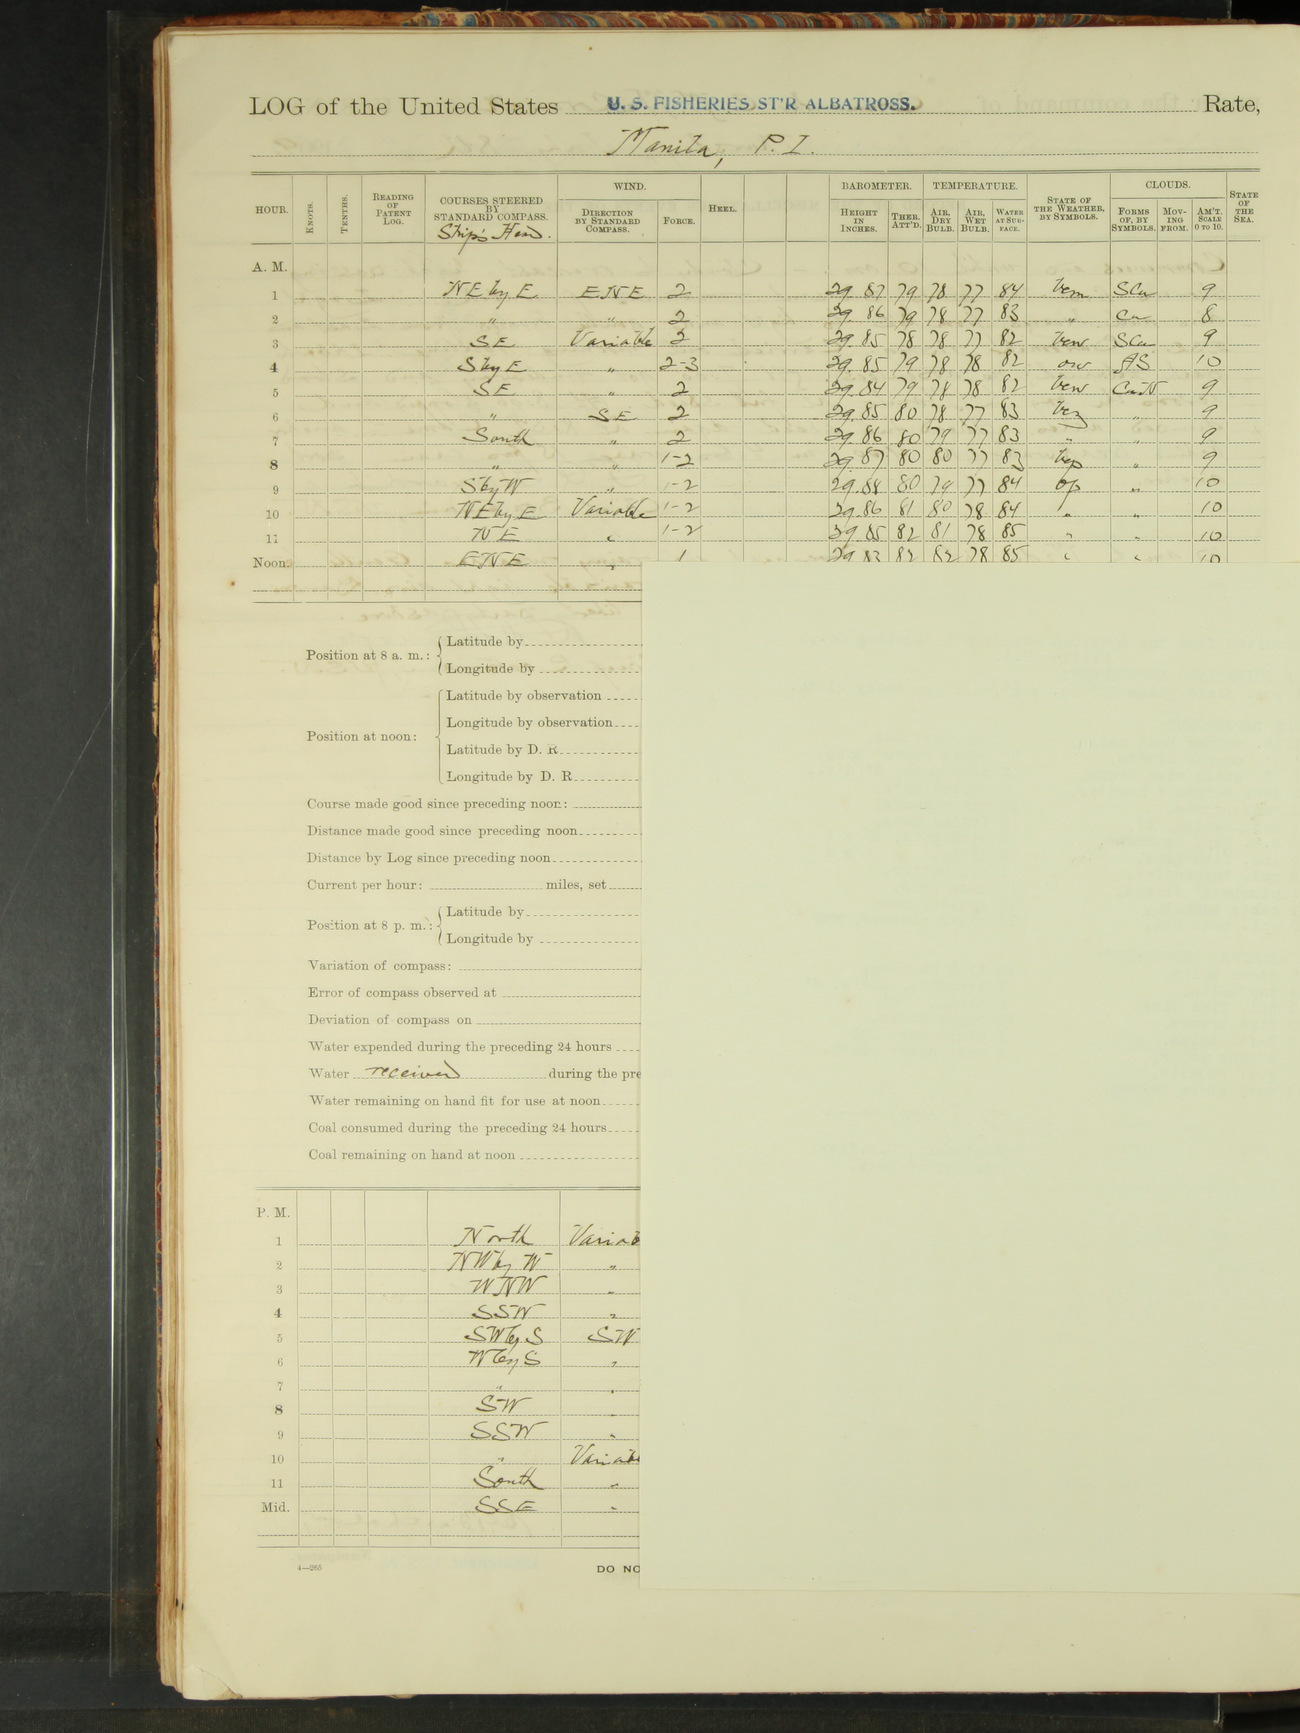 LOG of the United States U. S. FISHERIES ST'R ALBATROSS. Rate,
Manila, P. I.
HOUR. KNOTS. TENTHS. READING OF PATENT LOG. COURSES STEERED BY STANDARD COMPASS. Ship's Head. WIND. DIRECTION BY STANDARD COMPASS. FORCE. HEEL. BAROMETER. HEIGHT IN INCHES. THER. ATT'D. TEMPERATURE. AIR, DRY BULB. AIR, WET BULB. WATER AT SURFACE. STATE OF THE WEATHER, BY SYMBOLS. CLOUDS. FORMS OF, BY SYMBOLS. MOVING FROM. AM'T. SCALE 0 TO 10. STATE OF THE SEA.
A. M.
1 NE by E ENE 2 29.87 79 78 77 84 SCu 9
2 " " 2 29.86 79 78 77 83 " Cu 8
3 SE Variable 2 29.85 78 78 77 82 SCu 9
4 S by E " 2-3 29.85 79 78 78 82 ow AS 10
5 SE " 2 29.84 79 78 78 82 CuN 9
6 " SE 2 29.85 80 78 77 83 " 9
7 South " 2 29.86 80 79 77 83 " " 9
8 " " 1-2 29.87 80 80 77 83 " 9
9 S by W " 1-2 29.88 80 79 77 84 op " 10
10 NE by E Variable 1-2 29.86 81 80 78 84 " " 10
11 NE " 1-2 29.85 82 81 78 85 " " 10
Noon. ENE " 1 29.83 82 82 78 85 " " 10
Position at 8 a. m.: Latitude by
Longitude by
Position at noon: Latitude by observation
Longitude by observation
Latitude by D. R.
Longitude by D. R.
Course made good since preceding noon:
Distance made good since preceding noon
Distance by Log since preceding noon
Current per hour: miles, set
Position at 8 p. m.: Latitude by
Longitude by
Variation of compass:
Error of compass observed at
Deviation of compass on
Water expended during the preceding 24 hours
Water received during the pre
Water remaining on hand fit for use at noon
Coal consumed during the preceding 24 hours
Coal remaining on hand at noon
P. M.
1 North Variab
2 NW by W "
3 WNW "
4 SSW "
5 SW by S SW
6 W by S "
7 " "
8 SW "
9 SSW "
10 " Variab
11 South "
Mid. SSE "
4—265 DO NO